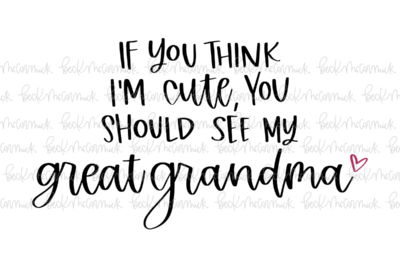 IF YOU THINK
I'M cute, YOU
SHOULD SEE MY
great grandma